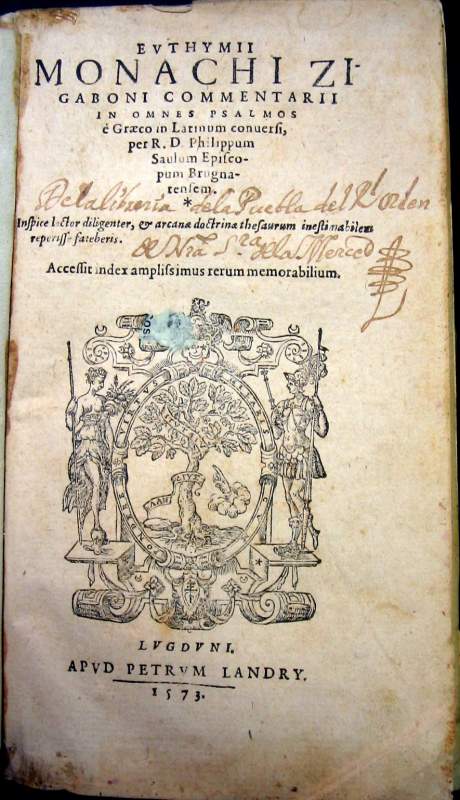 EVTHYMII
MONACHI ZI-
GABONI COMMENTARII
IN OMNES PSALMOS
è Græco in Latinum conuersi,
per R. D. Philippum
Saulum Episco-
pum Brugna-
tensem.
*
De la libreria de la Puebla del Rl Orden
Inspice lector diligenter, & arcana doctrinæ thesaurum inestimabilem
reperisse fateberis.
de Nra Sra de la Merced
Accessit index amplissimus rerum memorabilium.
LVGDVNI.
APVD PETRVM LANDRY.
1573.